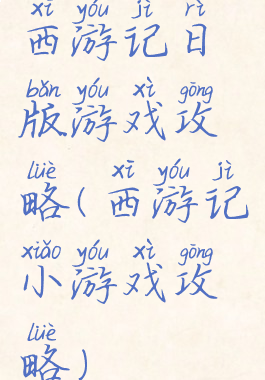 xī yóu jì rì
西游记日
bǎn yóu xì gōng
版游戏攻
lüè xī yóu jì
略(西游记
xiǎo yóu xì gōng
小游戏攻
lüè
略)